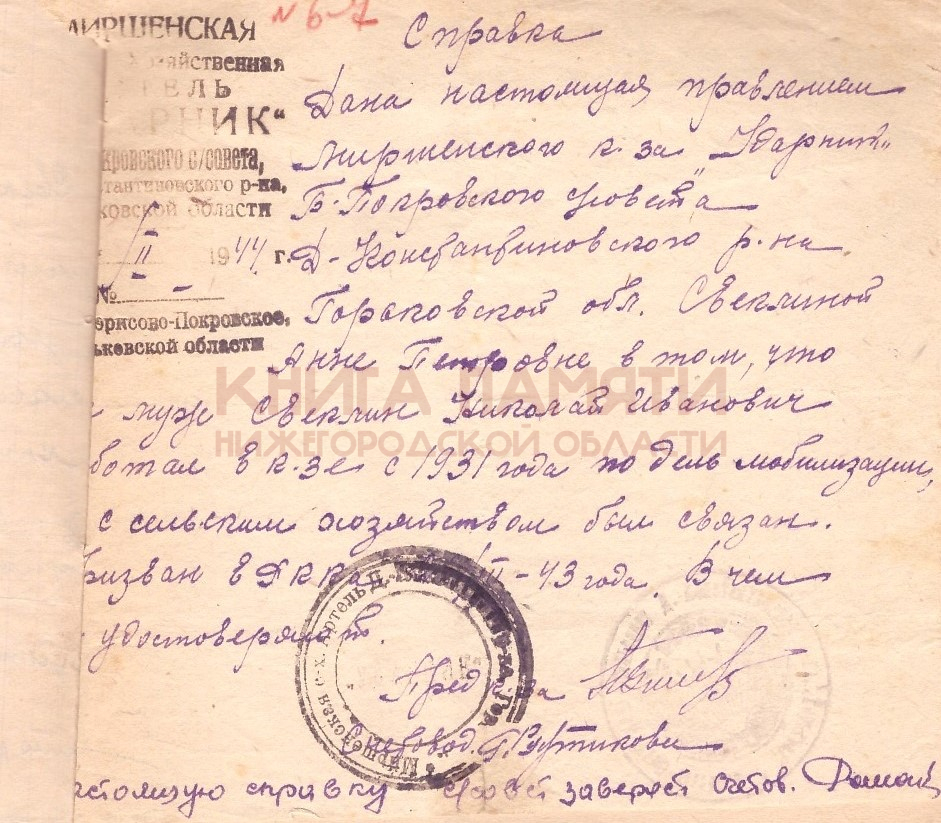 № 6-7
МИРШЕНСКАЯ
яйственная
ТЕЛЬ
РНИК"
кровского с/совета,
стантиновского р-на,
ковской области
II 1944 г.
№
орисово-Покровское,
ьковской области
Справка
Дана настоящая правлением
Миршенского к-за „Ударник"
Б-Покровского с/совета
Д-Константиновского р-на
Горьковской обл. Свеклиной
Анне Петровне в том, что
муж Свеклин Николай Иванович
ботал в к-зе с 1931 года по день мобилизации,
с сельским хозяйством был связан.
ризван в РККА II-43 года. В чем
удостоверяют.
Пред к-за
Счетовод.
астоящую справку с/совет заверяет Счетов.
Миршенская с-х. Артель
КНИГА ПАМЯТИ
НИЖЕГОРОДСКОЙ ОБЛАСТИ